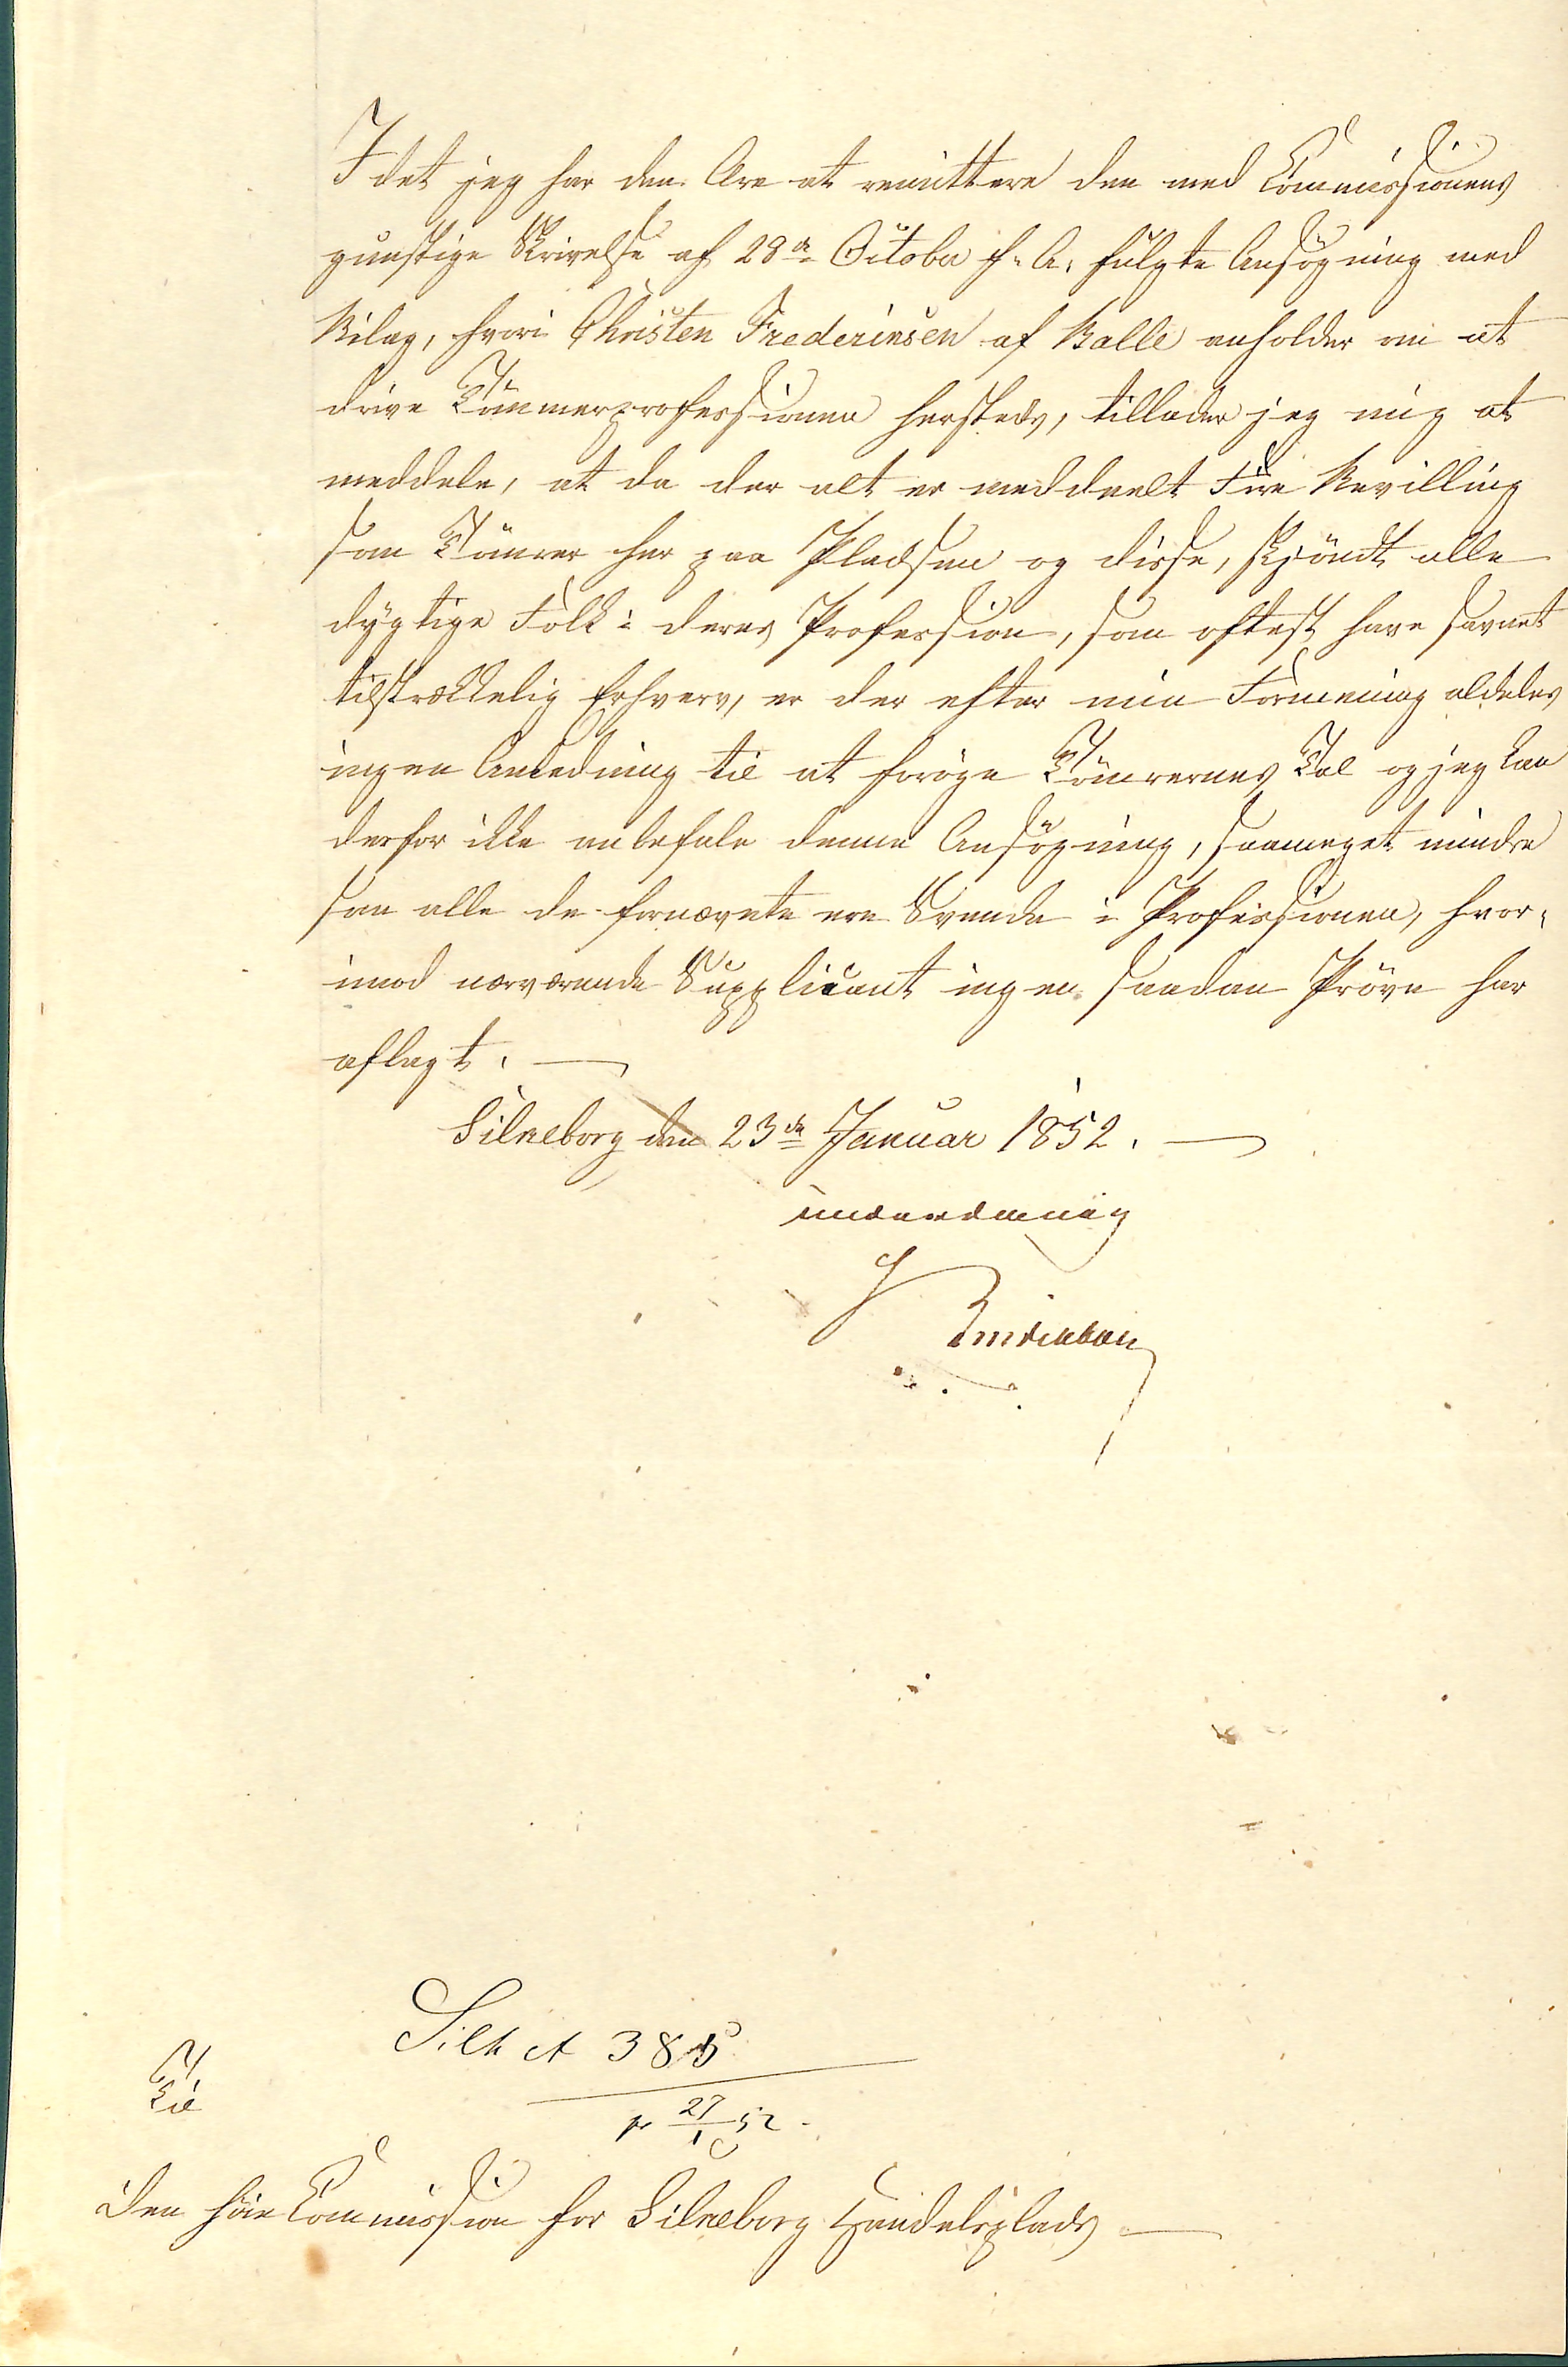 Idet jeg har den Ære at remittere den med Commissionens
gunstige Skrivelse af 28de October f. A. fulgte Ansøgning med
Bilag, hvori Christen Frederiksen af Balle anholder om at
drive Tømmerprofessionen hersteds, tillader jeg mig at
meddele, at da der alt er meddeelt Fire Bevilling
som Tømrer her paa Pladsen og disse, skjöndt alle
dygtige Folk i deres Profession, som oftest have savnet
tilstrækkelig Erhverv, er der efter min Formening aldeles
ingen Anledning til at forøge Tömrernes Tal og jeg kan
derfor ikke anbefale denne Ansøgning, saameget mindre
som alle de fornævnte ere Svende i Professionen, hvor-
imod nærværende Supplicant ingen saadan Pröve har
aflagt. —
Silkeborg den 23de Januar 1852. —
underdanig
Silk A 385
pr 27/1 52.
Til
Den höie Commission for Silkeborg Handelsplads —